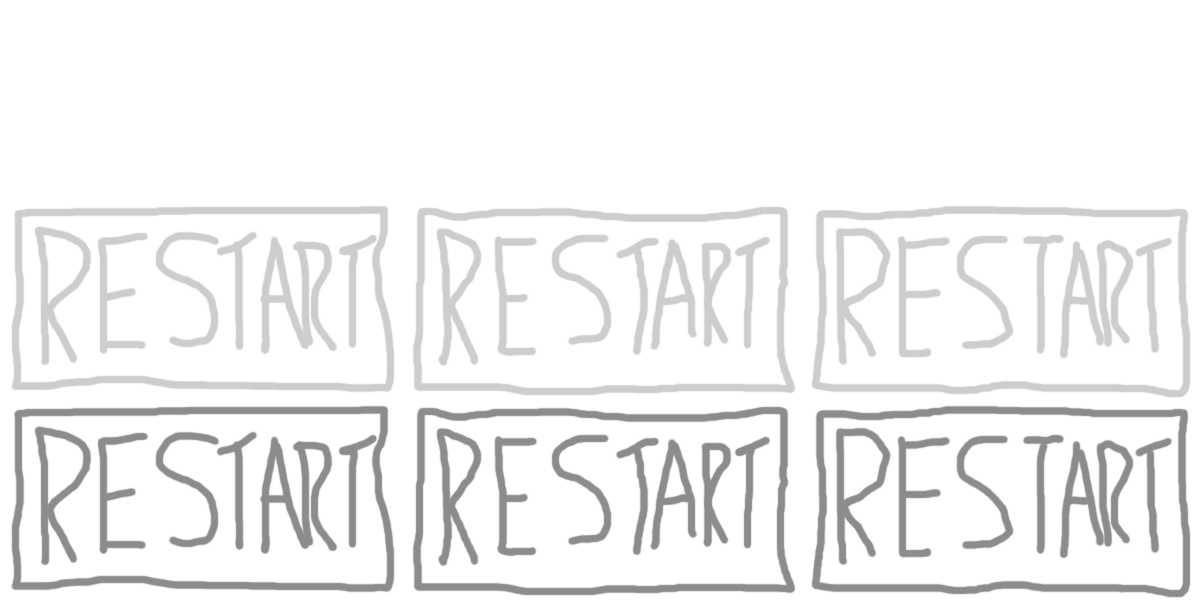 RESTART RESTART RESTART
RESTART RESTART RESTART